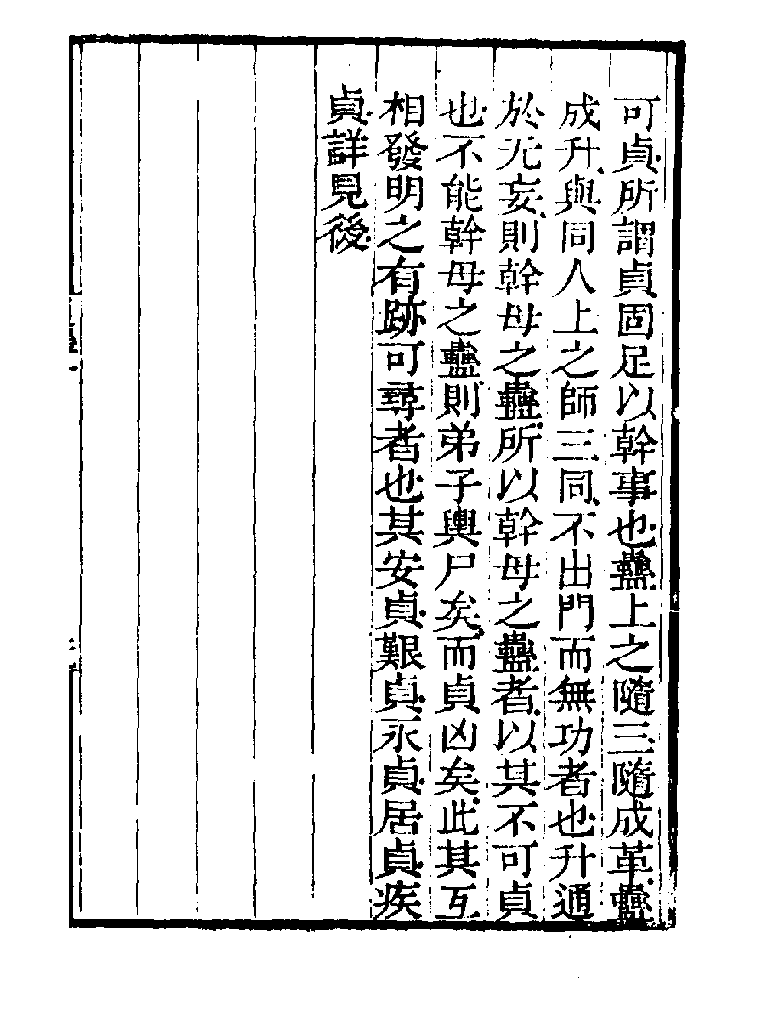 可貞所謂貞固足以幹事也蠱上之隨三隨成革蠱
成升與同人上之師三同不出門而無功者也升通
於无妄則幹母之蠱所以幹母之蠱者以其不可貞
也不能幹母之蠱則弟子輿尸矣而貞凶矣此其互
相發明之有跡可尋者也其安貞艱貞永貞居貞疾
貞詳見後